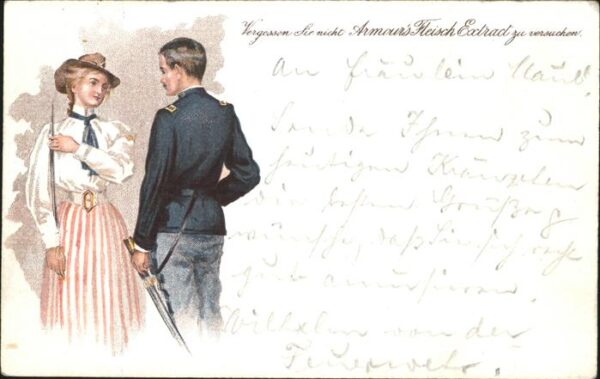 Vergessen Sie nicht Armour's Fleisch Extract zu versuchen.
An Fräulein Maul.
Sende Ihnen zum
heutigen Kränzchen
die besten Grüße
wünsche, daß Sie sich recht
gut amusieren.
Wilhelm von der
Feuerwehr.